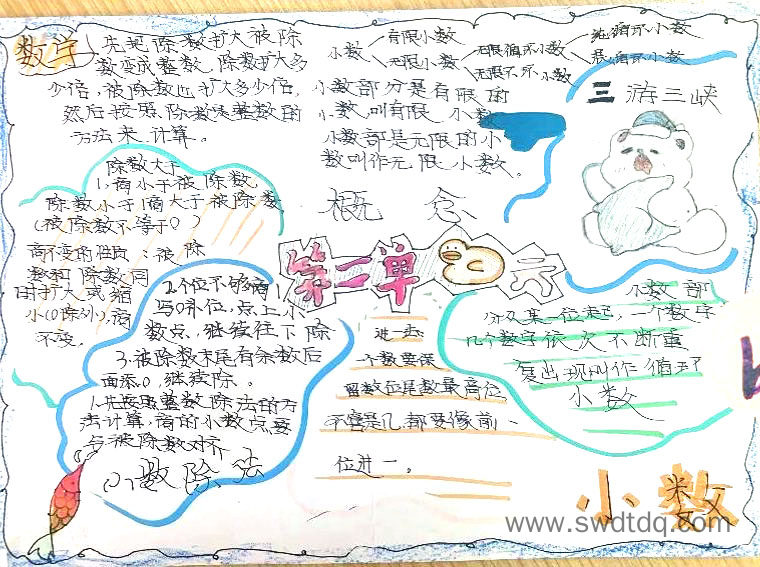 数学
先把除数扩大被除
数变成整数,除数扩大多
少倍,被除数也扩大多少倍,
然后按照除数是整数的
方法来计算。
小数
有限小数
无限小数
无限循环小数
无限不环小数
纯循环小数
混循环小数
小数部分是有限的
小数叫有限小数
小数部是无限的小
数叫作无限小数。
概念
三游三峡
除数大于
1,商小于被除数,
除数小于1商大于被除数
(被除数不等于0)
商不变的性质:被除
数和除数同
时扩大或缩
小(0除外),商
不变。
第二单元
2.个位不够商1,
写0补位,点上小
数点,继续往下除
3.被除数末尾有余数后
面添0,继续除。
1.先按照整数除法的方
法计算,商的小数点要
与被除数对齐
小数除法
进一法:
一个数要保
留数位尾数最高位
不管是几都要像前一
位进一。
小数部
分从某一位起,一个数字
几个数字依次不断重
复出现叫作循环
小数
小数
www.swdtdq.com